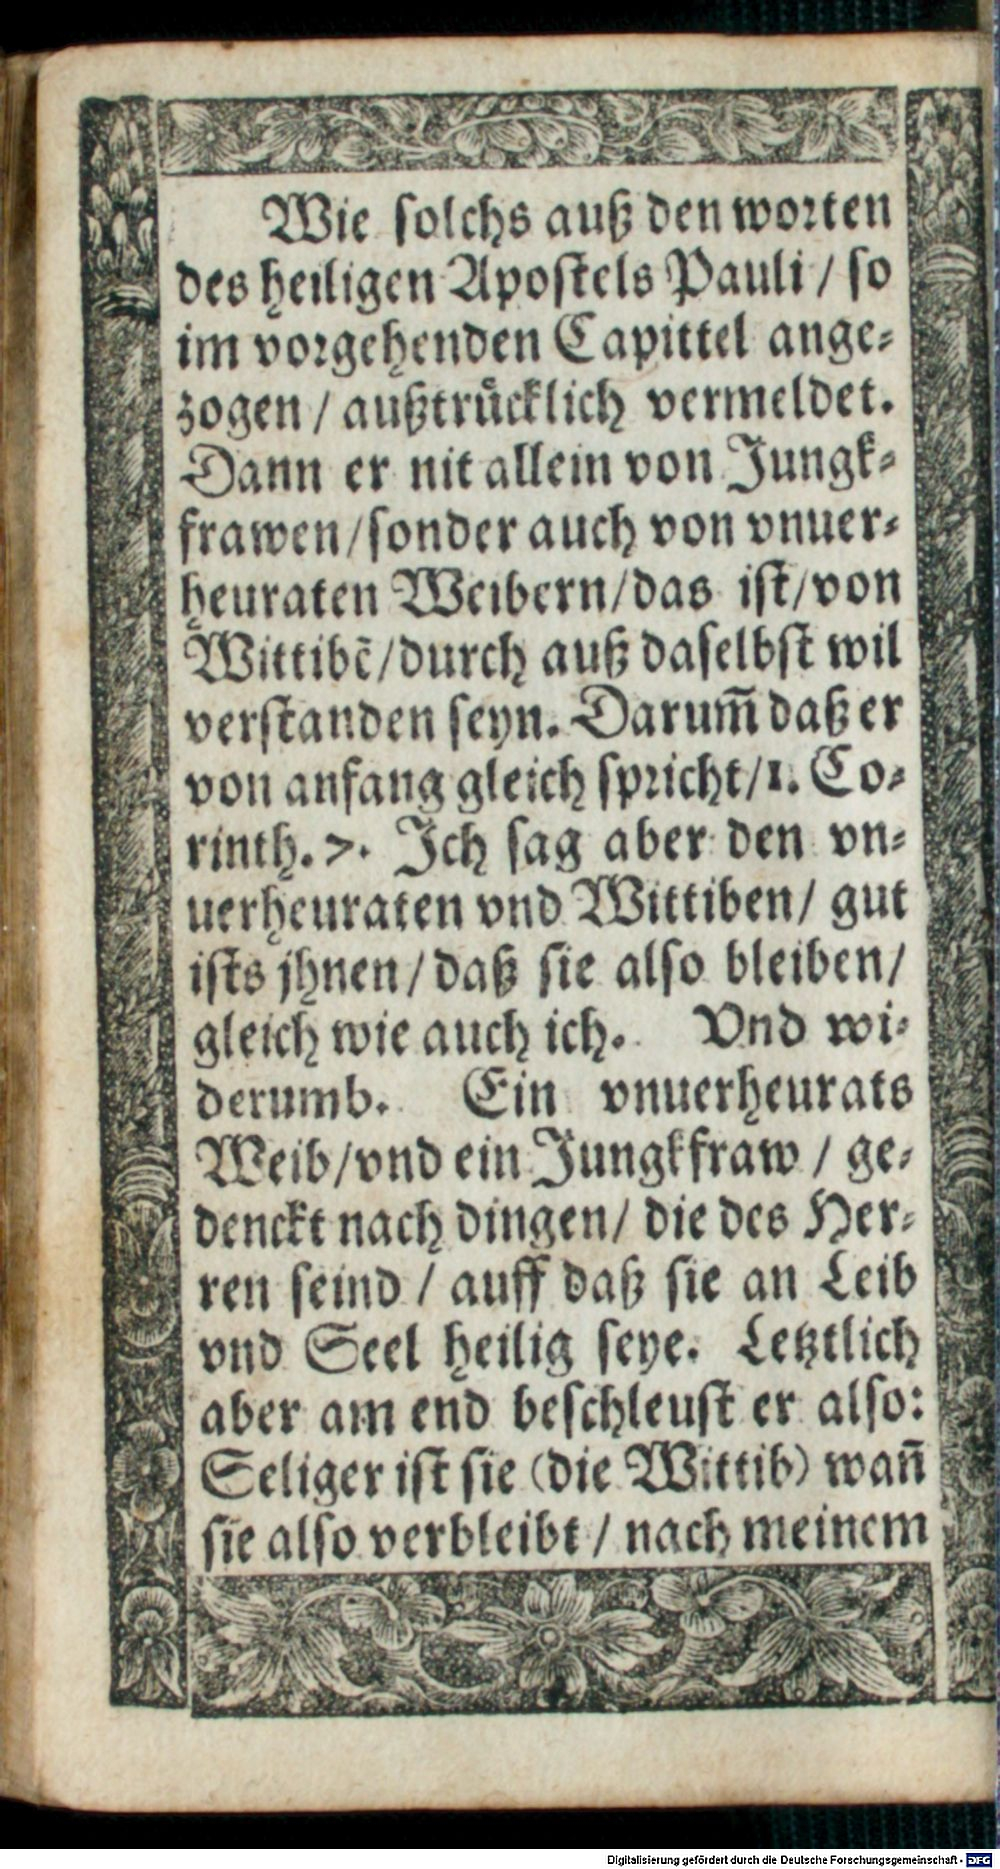 Wie solchs auß den worten
des heiligen Apostels Pauli / so
im vorgehenden Capittel ange⸗
zogen / außtruͤcklich vermeldet.
Dann er nit allein von Jungk⸗
frawen / sonder auch von vnuer⸗
heuraten Weibern / das ist / von
Wittibẽ / durch auß daselbst wil
verstanden seyn. Darum̃ daß er
von anfang gleich spricht / 1. Co⸗
rinth. 7. Ich sag aber den vn⸗
uerheuraten vnd Wittiben / gut
ists jhnen / daß sie also bleiben /
gleich wie auch ich. Vnd wi⸗
derumb. Ein vnuerheurats
Weib / vnd ein Jungkfraw / ge⸗
denckt nach dingen / die des Her⸗
ren seind / auff daß sie an Leib
vnd Seel heilig seye. Letztlich
aber am end beschleust er also:
Seliger ist sie (die Wittib) wañ
sie also verbleibt / nach meinem
Digitalisierung gefördert durch die Deutsche Forschungsgemeinschaft - DFG